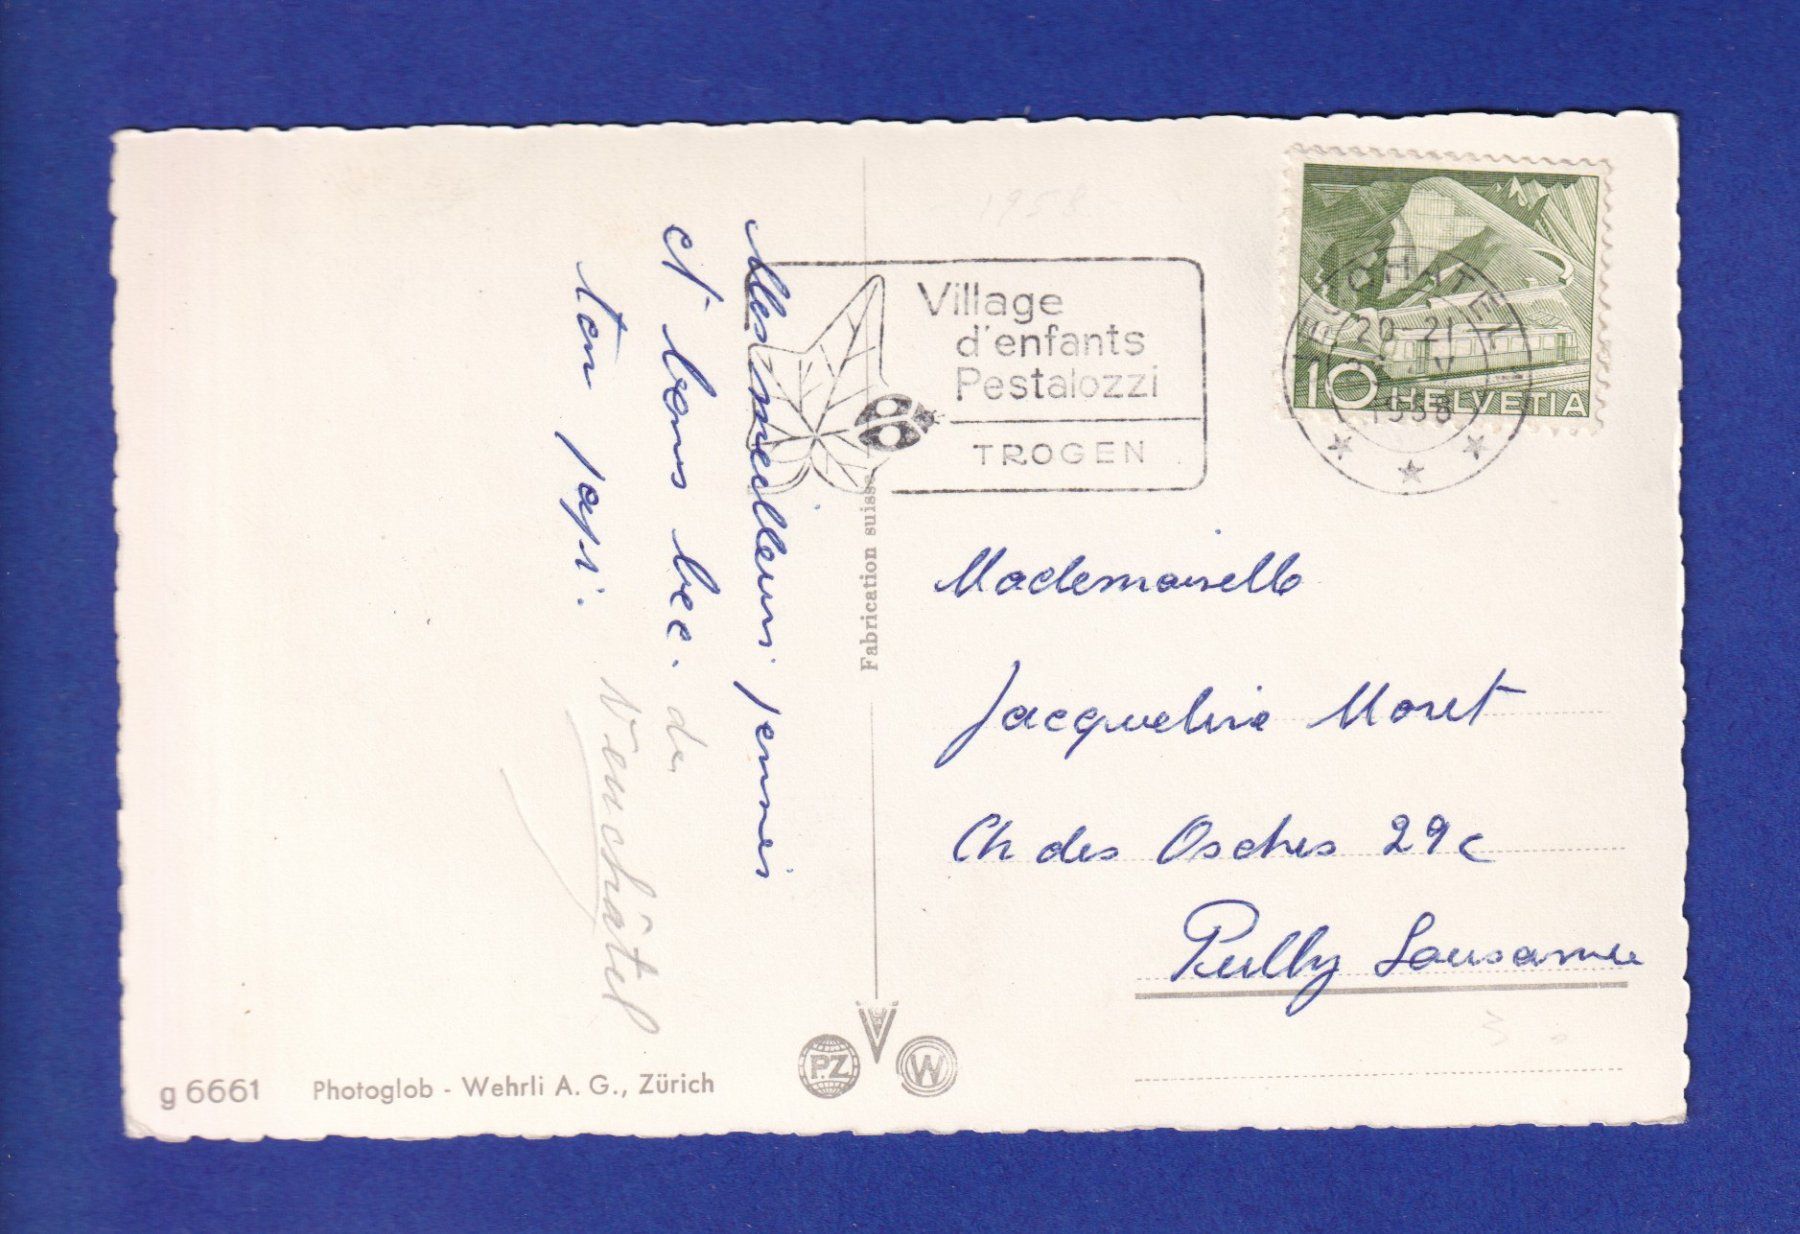 Mes meilleurs pensées
et bons bec. de
ton papi.
Neuchâtel
1958
Village
d'enfants
Pestalozzi
TROGEN
NEUCHATEL 1
20-21
1958
10 HELVETIA
Fabrication suisse
Mademoiselle
Jacqueline Moret
Ch des Osches 29c
Pully Lausanne
g 6661 Photoglob - Wehrli A. G., Zürich
P.Z
W